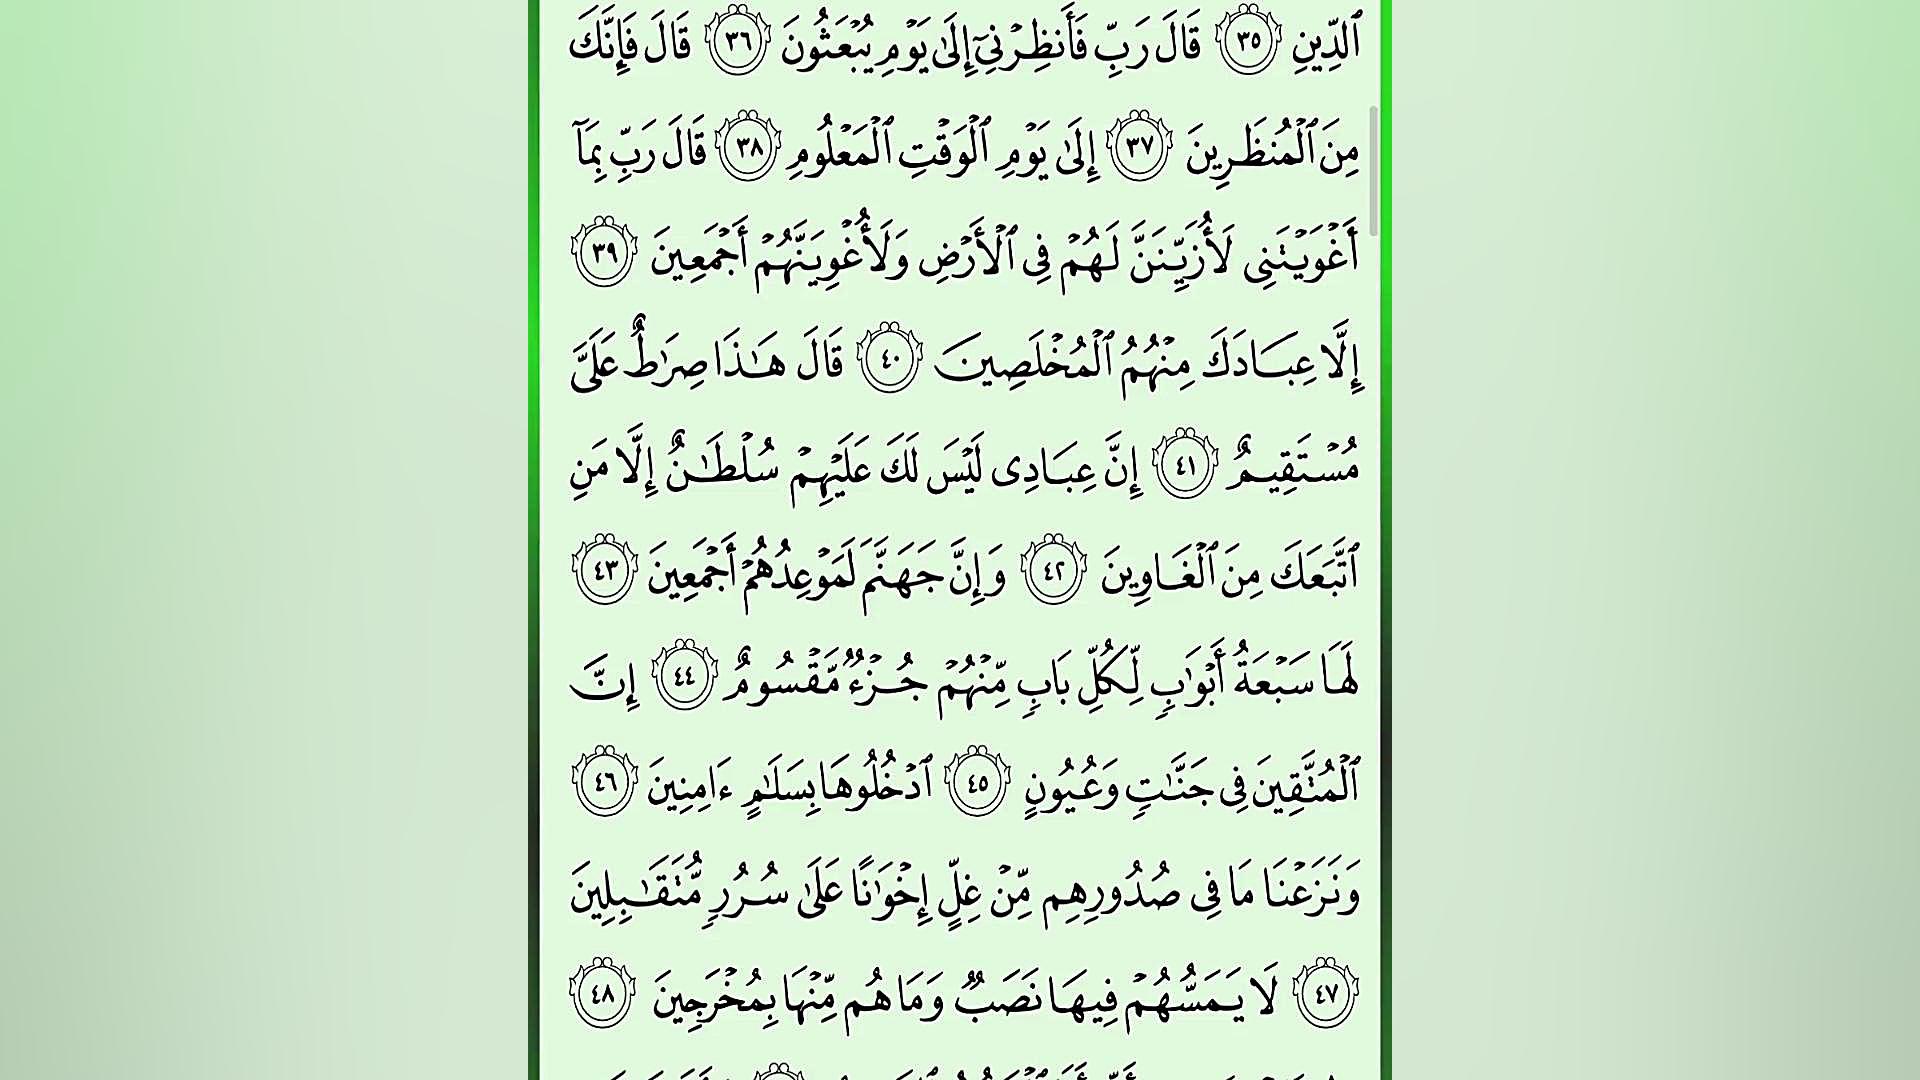 ٱلدِّينِ ٣٥ قَالَ رَبِّ فَأَنظِرۡنِيٓ إِلَىٰ يَوۡمِ يُبۡعَثُونَ ٣٦ قَالَ فَإِنَّكَ
مِنَ ٱلۡمُنظَرِينَ ٣٧ إِلَىٰ يَوۡمِ ٱلۡوَقۡتِ ٱلۡمَعۡلُومِ ٣٨ قَالَ رَبِّ بِمَآ
أَغۡوَيۡتَنِي لَأُزَيِّنَنَّ لَهُمۡ فِي ٱلۡأَرۡضِ وَلَأُغۡوِيَنَّهُمۡ أَجۡمَعِينَ ٣٩
إِلَّا عِبَادَكَ مِنۡهُمُ ٱلۡمُخۡلَصِينَ ٤٠ قَالَ هَٰذَا صِرَٰطٌ عَلَيَّ
مُسۡتَقِيمٌ ٤١ إِنَّ عِبَادِي لَيۡسَ لَكَ عَلَيۡهِمۡ سُلۡطَٰنٌ إِلَّا مَنِ
ٱتَّبَعَكَ مِنَ ٱلۡغَاوِينَ ٤٢ وَإِنَّ جَهَنَّمَ لَمَوۡعِدُهُمۡ أَجۡمَعِينَ ٤٣
لَهَا سَبۡعَةُ أَبۡوَٰبٖ لِّكُلِّ بَابٖ مِّنۡهُمۡ جُزۡءٞ مَّقۡسُومٌ ٤٤ إِنَّ
ٱلۡمُتَّقِينَ فِي جَنَّٰتٖ وَعُيُونٍ ٤٥ ٱدۡخُلُوهَا بِسَلَٰمٍ ءَامِنِينَ ٤٦
وَنَزَعۡنَا مَا فِي صُدُورِهِم مِّنۡ غِلٍّ إِخۡوَٰنًا عَلَىٰ سُرُرٖ مُّتَقَٰبِلِينَ
٤٧ لَا يَمَسُّهُمۡ فِيهَا نَصَبٞ وَمَا هُم مِّنۡهَا بِمُخۡرَجِينَ ٤٨